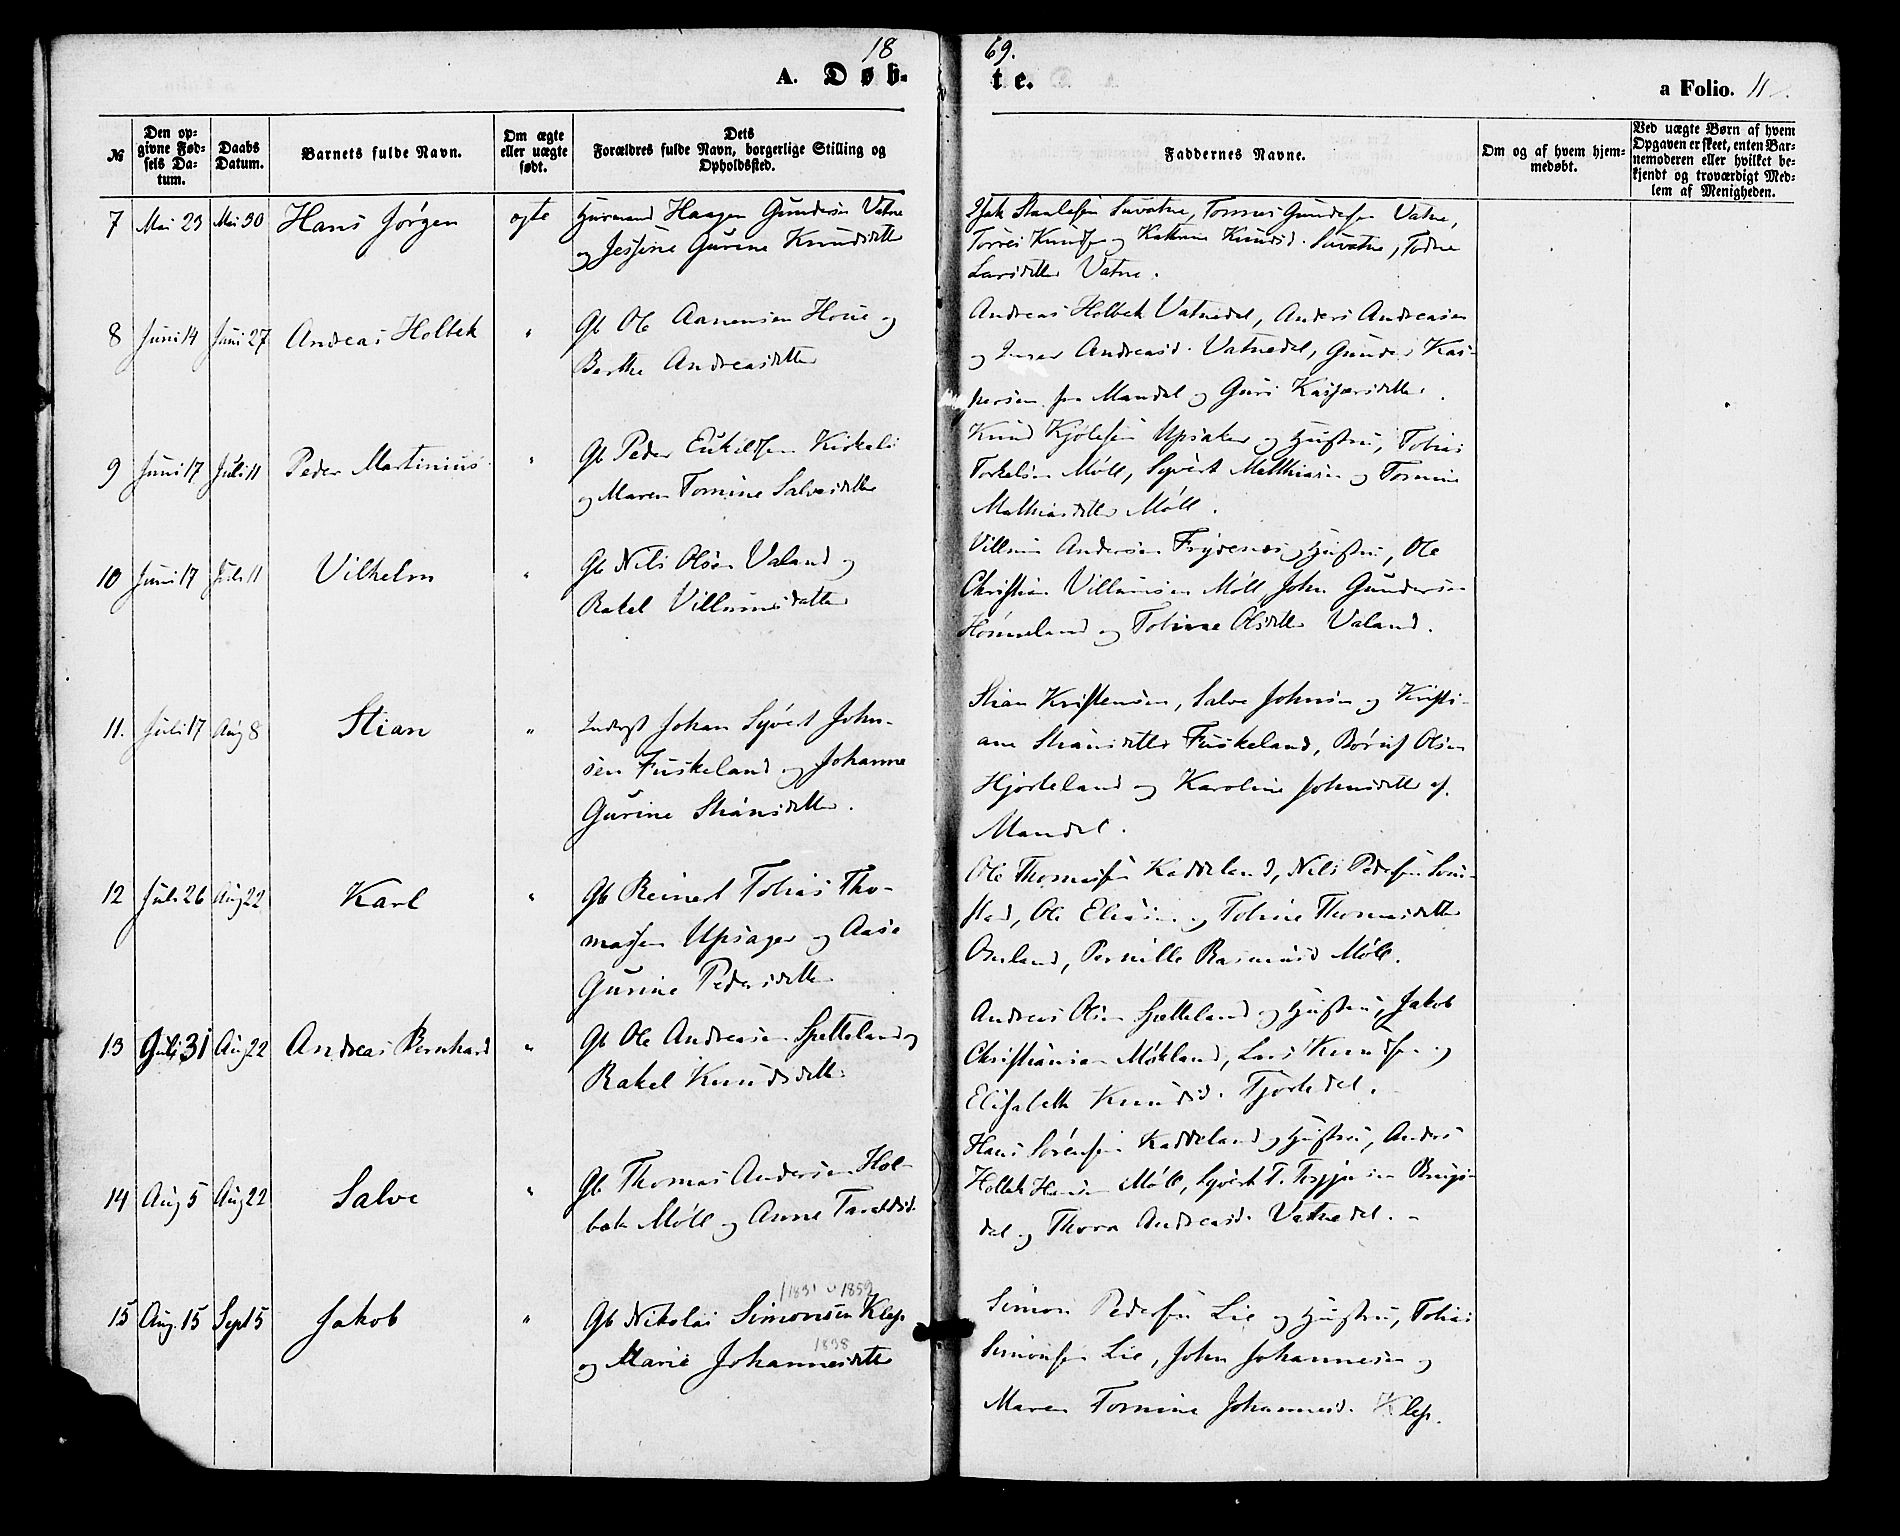 18 69.
A. Døb- te.
a Folio. 11
№
Den opgivne Fødsels Datum.
Daabs Datum.
Barnets fulde Navn.
Om ægte eller uægte født.
Dets Forældres fulde Navn, borgerlige Stilling og Opholdssted.
Faddernes Navne.
Om og af hvem hjemmedøbt.
Ved uægte Børn af hvem Opgaven er skeet, enten Barnemoderen eller hvilket bekjendt og troværdigt Medlem af Menigheden.
7 Mai 23 Mai 30 Hans Jørgen ægte Huusmand Haagen Gundersen Vatne
og Jessine Gurine Knudsdatter
Staalesen Suvatne, Tønnes Gundersen Vatne,
Knudsen og Knudsd. Suvatne, Todne
Larsdatter Vatne.
8 Juni 14 Juni 27 Andreas Holbek " Gb Ole Aanensen Houe og
Berthe Andreasdatter
Andreas Holbek Vatnedal, Anders Andreasen
og Inger Andreasd. Vatnedal, Gunder Kas-
persen fra Mandal og Guri Kaspersdatter.
9 Juni 17 Juli 11 Peder Martinius " Gb Peder Eukildsen Kirkeli
og Maren Tomine Salvesdatter
Knud Kjølesen Upsaker og Hustru, Tobias
Torkelsen Møll, Syvert Matthiasen og Tomine
Mathiasdatter Møll.
10 Juni 17 Juli 11 Vilhelm " Gb Nils Olsen Valand og
Rakel Villumsdatter
Villum Andersen Frydenæs og Hustru, Ole
Christian Villumsen Møll, John Gundersen
Hønneland og Tobine Olsdatter Valand.
11. Juli 17 Aug 8 Stian " Inderst Johan Syvert John-
sen Fuskeland og Johanne
Gurine Stiansdatter.
Stian Kristensen, Salve Johnsen og Kristi-
ane Stiansdatter Fuskeland, Børuf Olsen
Hjorteland og Karoline Johnsdatter af
Mandal.
12 Juli 26 Aug 22 Karl " Gb Reinert Tobias Tho-
massen Upsager og Aase
Gurine Pedersdatter
Ole Thomassen Kaddeland, Nils Pedersen Soni-
stad, Ole Eliasen og Tobine Thomasdatter
Omland, Pernille Rasmusd Møll.
13 Juli 31 Aug 22 Andreas Bernhard " Gb Ole Andreasen Spetteland og
Rakel Knudsdatter
Andreas Olsen Spetteland og Hustru, Jakob
Christiansen Møkland, Lars Knudsen og
Elisabeth Knudsd. Tjortedal.
14 Aug 5 Aug 22 Salve " Gb Thomas Andersen Hol-
bek Møll og Anne Taraldsd.
Hans Sørensen Kaddeland og Hustru, Anders
Holbek Hansen Møll, Syvert T. Terjesen
dal og Thora Andreasd. Vatnedal.
1831 1859
15 Aug. 15 Sept 5 Jakob " Gb Nikolai Simonsen Klep.
1838
og Marie Johannesdatter
Simon Pedersen Lie og Hustru, Tobias
Simonsen Lie, John Johannesen og
Maren Tomine Johannesd. Klep.